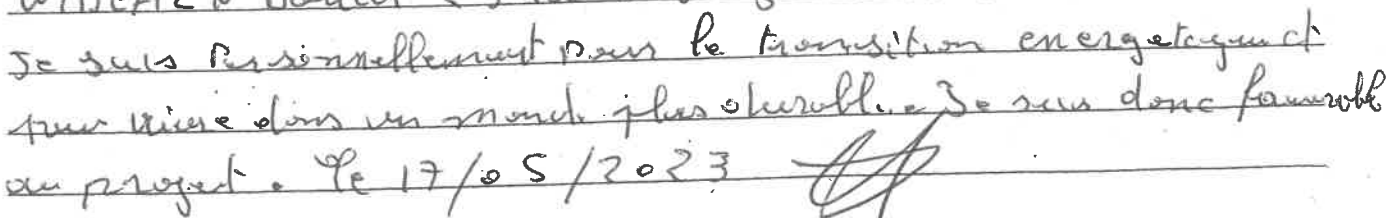 Je suis Personnellement pour la transition energetique et
pour vivre dans un monde plus durable. Je suis donc favorable
au projet. Le 17/05/2023